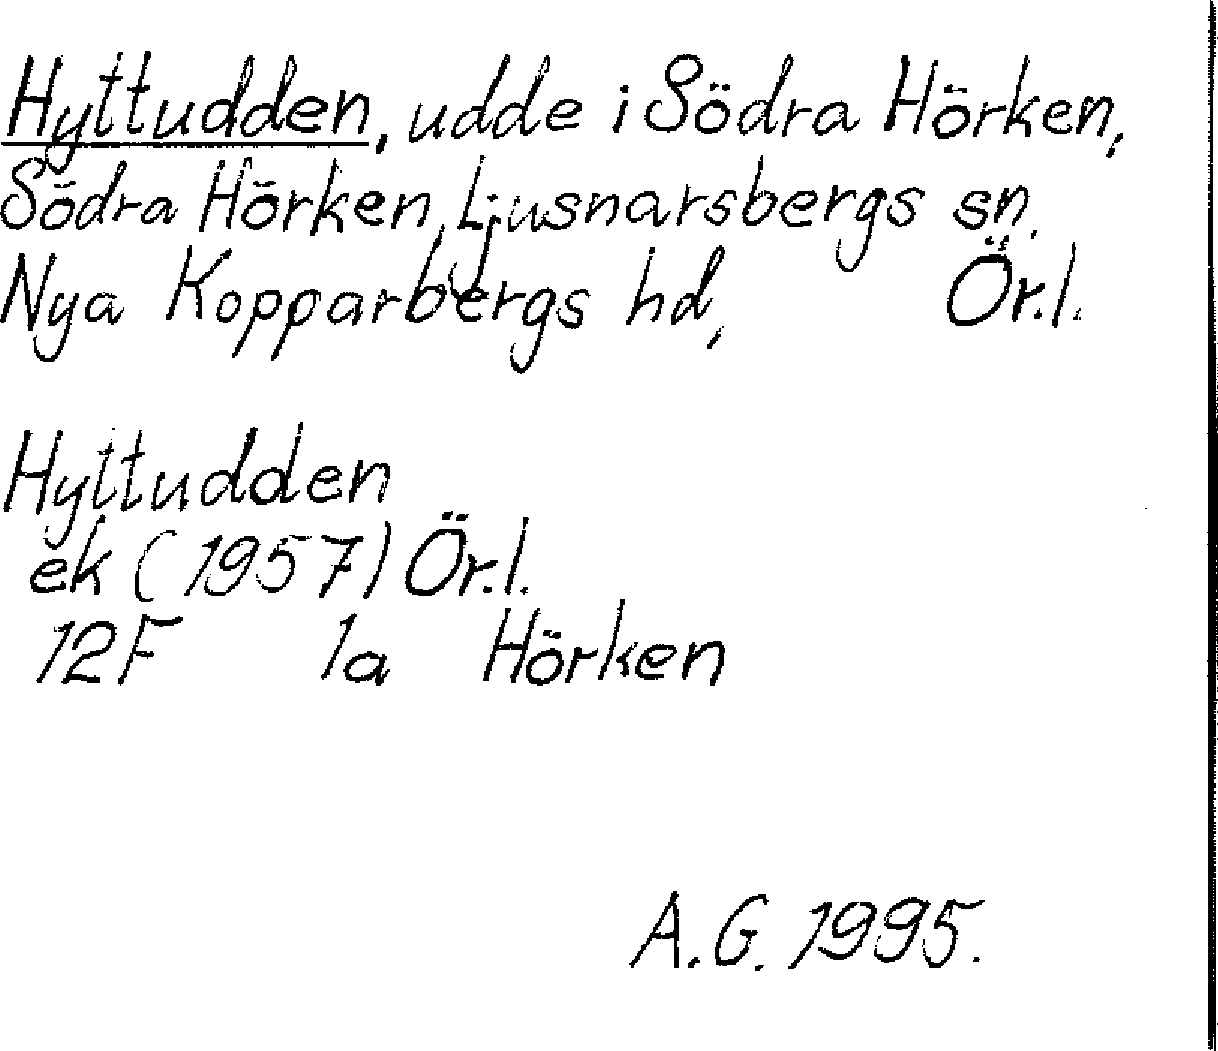 Hyttudden, udde i Södra Hörken,
Södra Hörken, Ljusnarsbergs sn,
Nya Kopparbergs hd, Ör.l.
Hyttudden
ek (1957) Ör.l.
12F 1a Hörken
A.G. 1995.